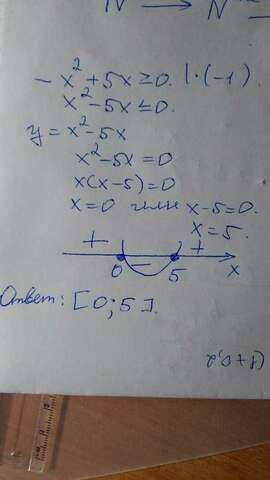 N → N
-x²+5x≥0. |·(-1).
x²-5x≤0.
y=x²-5x
x²-5x=0
x(x-5)=0
x=0 или x-5=0.
x=5.
+ - +
0 5 x
Ответ: [0;5].